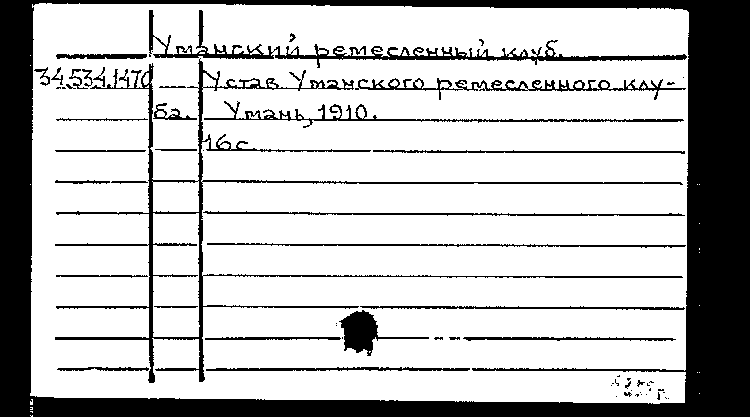 Уманский ремесленный клуб.
34.534.1470 Устав Уманского ремесленного клу-
ба. Умань, 1910.
16с.